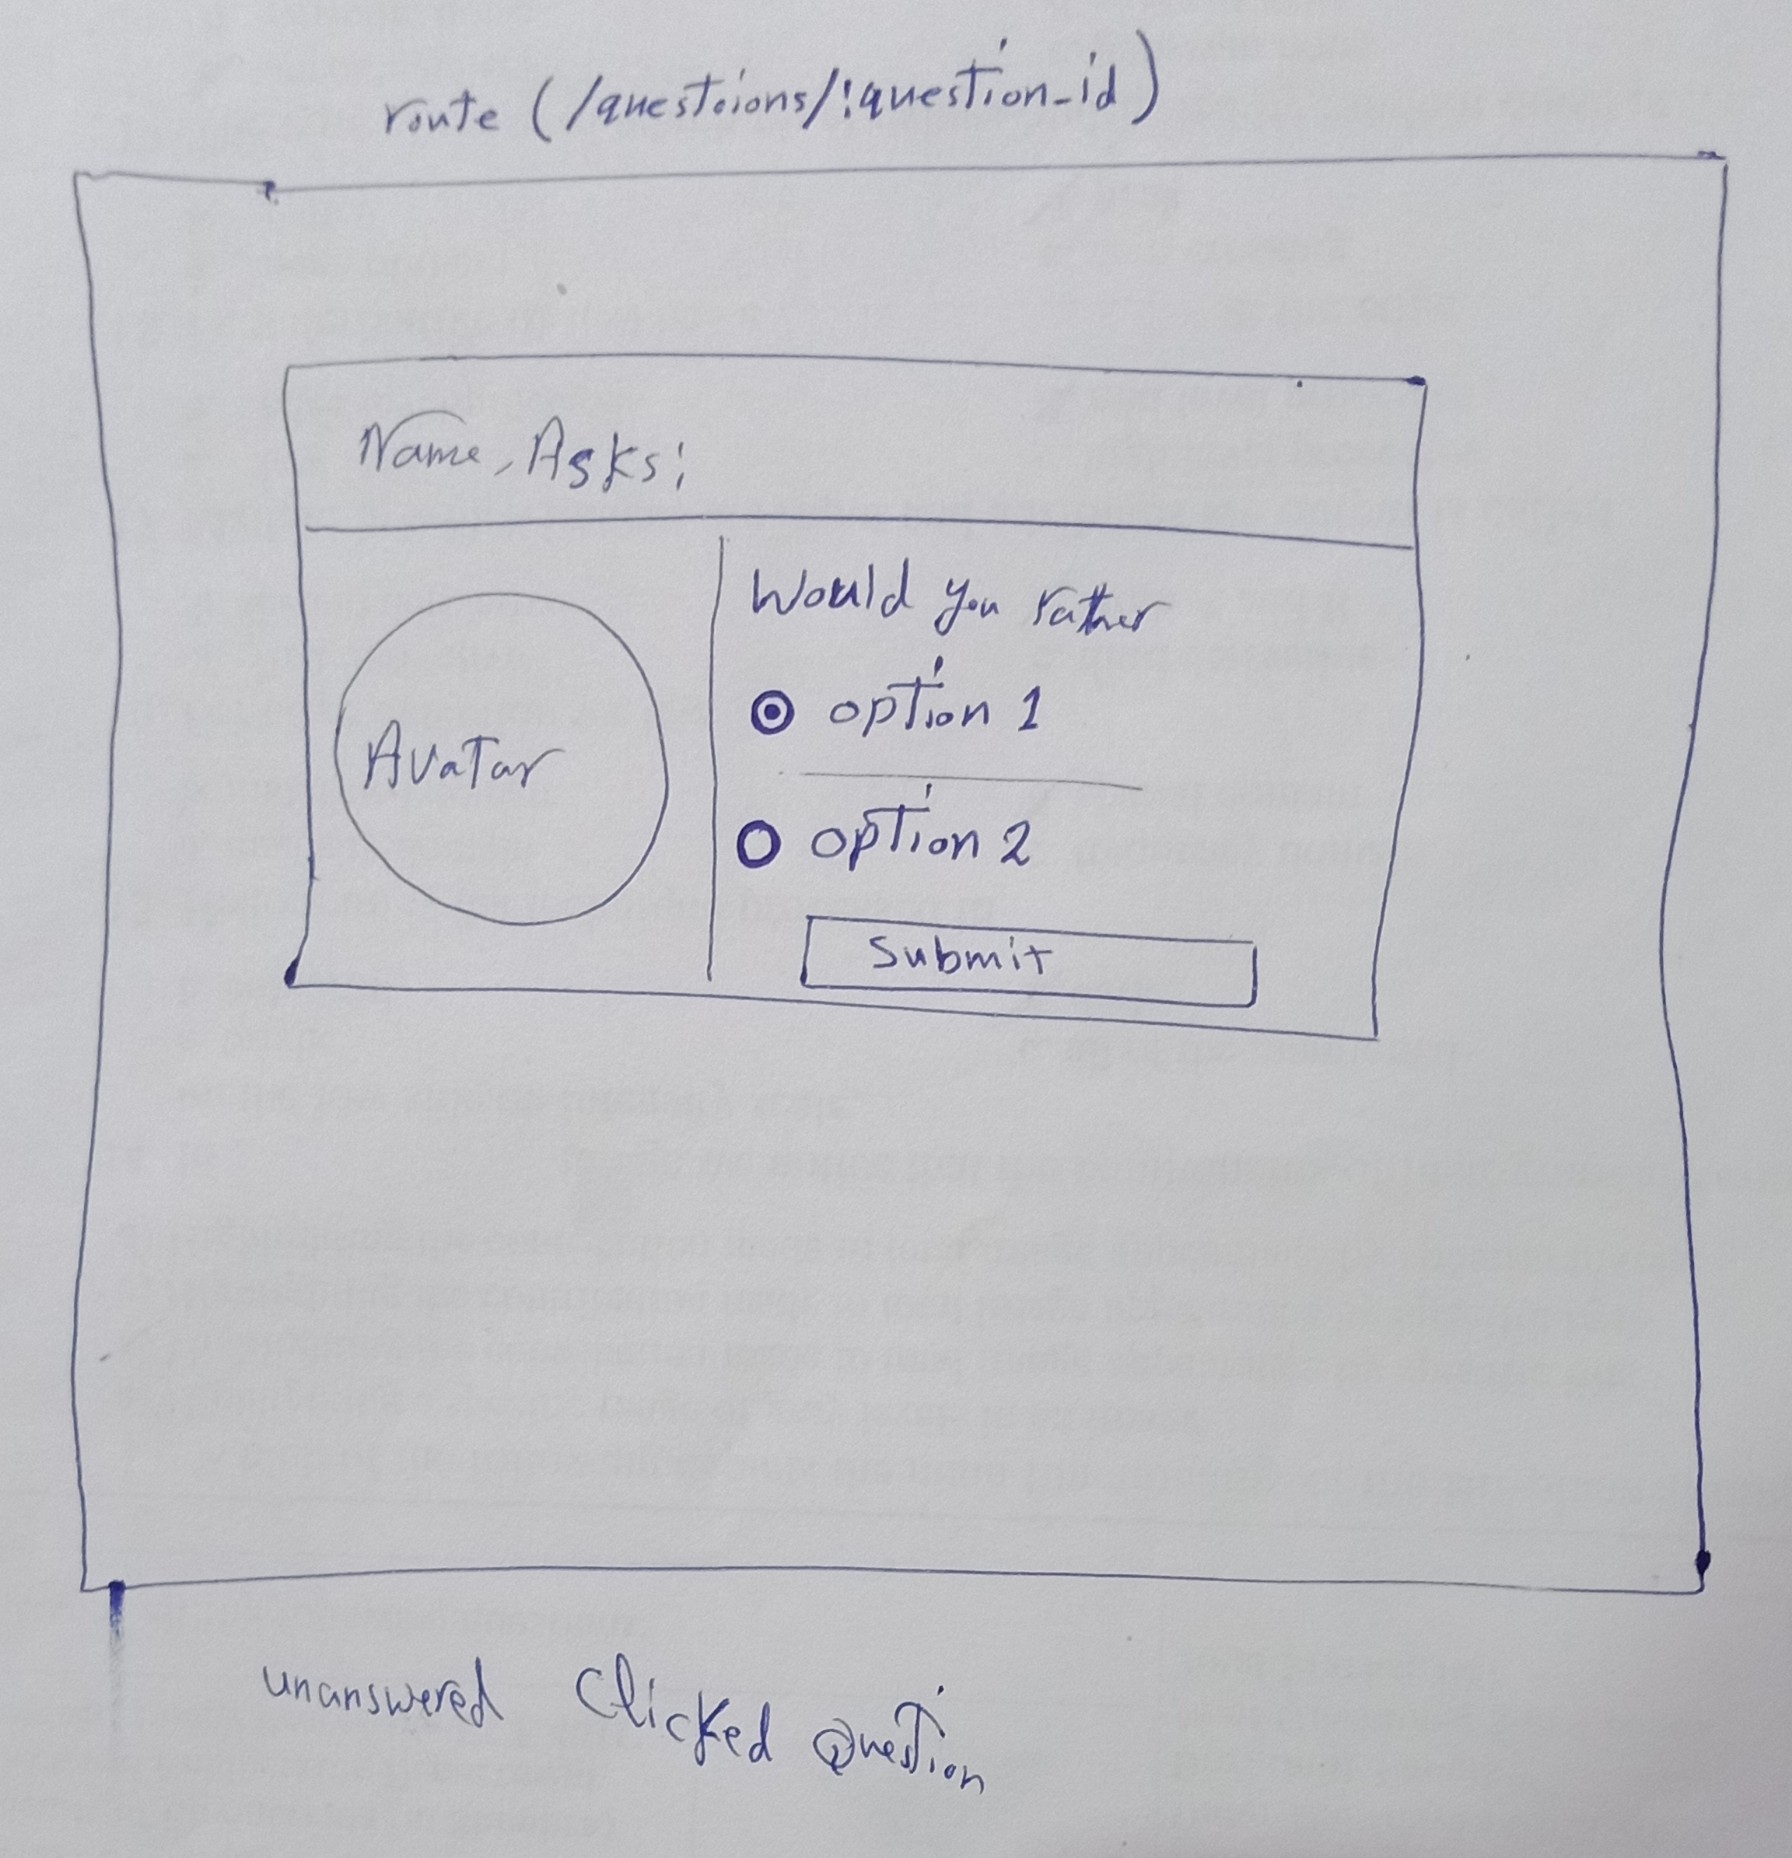 route (/questoions/:question_id)
Name, Asks:
Avatar
Would you rather
option 1
option 2
Submit
unanswered Clicked Question